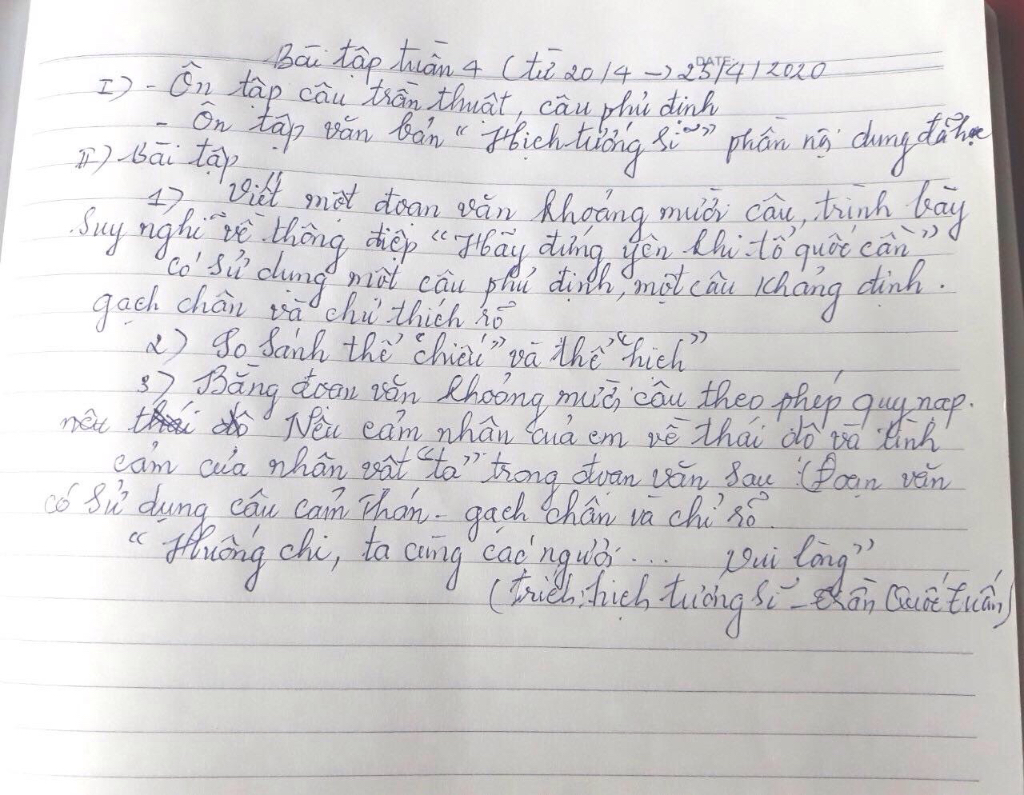 Bài tập tuần 4 (từ 20/4 → 25/4/2020
DATE:
I) - Ôn tập câu trần thuật, câu phủ định
- Ôn tập văn bản "Hịch tướng sĩ" phần nội dung đã học
II) Bài tập
1) Viết một đoạn văn khoảng mười câu, trình bày
suy nghĩ về thông điệp "Hãy đứng yên khi tổ quốc cần"
có sử dụng một câu phủ định, một câu khẳng định.
gạch chân và chú thích rõ
2) So sánh thể "chiếu" và thể "hịch"
3) Bằng đoạn văn khoảng mười câu theo phép quy nạp.
nêu thái độ Nêu cảm nhận của em về thái độ và tình
cảm của nhân vật "ta" trong đoạn văn sau (Đoạn văn
có sử dụng câu cảm thán - gạch chân và chỉ rõ.
"Huống chi, ta cùng các ngươi... vui lòng"
(trích: hịch tướng sĩ - trần Quốc tuấn)